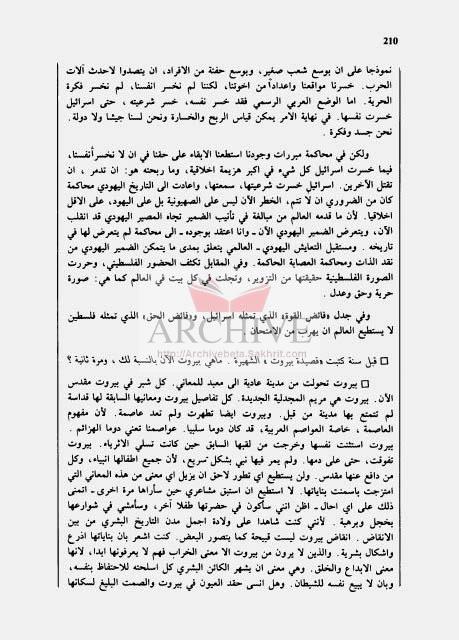 210
نموذجا على ان بوسع شعب صغير، وبوسع حفنة من الافراد، ان يتصدوا لاحدث آلات
الحرب. خسرنا مواقعنا واعداداً من اخوتنا، لكننا لم نخسر انفسنا، لم نخسر فكرة
الحرية. اما الوضع العربي الرسمي فقد خسر نفسه، خسر شرعيته ، حتى اسرائيل
خسرت نفسها. في نهاية الامر يمكن قياس الربح والخسارة ونحن لسنا جيشا ولا دولة.
نحن جسد وفكرة .
ولكن في محاكمة مبررات وجودنا استطعنا الابقاء على حقنا في ان لا نخسر أنفسنا،
فيما خسرت اسرائيل كل شيء في اكبر هزيمة اخلاقية، وما ربحته هو: ان تدمر ، ان
تقتل الآخرين. اسرائيل خسرت شرعيتها، سمعتها، واعادت الى التاريخ اليهودي محاكمة
كان من الضروري ان لا تتم، الخطر الآن ليس على الصهيونية بل على اليهود، على الاقل
اخلاقيا. لأن ما قدمه العالم من مبالغة في تأنيب الضمير تجاه المصير اليهودي قد انقلب
الآن، ويتعرض الضمير اليهودي الآن ـ وانا اعتقد بوجوده ـ الى محاكمة لم يتعرض لها في
تاريخه . ومستقبل التعايش اليهودي ـ العالمي يتعلق بمدى ما يتمكن الضمير اليهودي من
نقد الذات ومحاكمة العصابة الحاكمة. وفي المقابل تكثف الحضور الفلسطيني، وحررت
الصورة الفلسطينية حقيقتها من التزوير، وتجلت في كل بيت في العالم كما هي: صورة
حرية وحق وعدل .
وفي جدل «فائض القوة» الذي تمثله اسرائيل، و«فائض الحق» الذي تمثله فلسطين
لا يستطيع العالم ان يهرب من الامتحان .
ARCHIVE
http://Archivebeta.Sakhrit.com
□ قبل سنة كتبت «قصيدة بيروت» الشهيرة . ماهي بيروت الآن بالنسبة لك ، ومرة ثانية ؟
□ بيروت تحولت من مدينة عادية الى معبد للمعاني. كل شبر في بيروت مقدس
الآن. بيروت هي مريم المجدلية الجديدة. كل تفاصيل بيروت ومعانيها السابقة لها قداسة
لم تتمتع بها مدينة من قبل. وبيروت ايضا تطهرت ولم تعد عاصمة. لأن مفهوم
العاصمة ، خاصة العواصم العربية، قد كان دوما سلبيا. عواصمنا تعني دوما الهزائم .
بيروت استثنت نفسها وخرجت من لقبها السابق حين كانت تسلي الاثرياء. بيروت
تفوقت، حتى على دمها. ولم يمر فيها نبي بشكل سريع، لأن جميع اطفالها انبياء، وكل
من دافع عنها مقدس. ولن يستطيع اي تطور لاحق ان يزيل اي معنى من هذه المعاني التي
امتزجت باسمنت بناياتها. لا استطيع ان استبق مشاعري حين سأراها مرة اخرى ـ اتمنى
ذلك على اي احال ـ اظن انني سأكون في حضرتها طفلا آخر، وسأمشي في شوارعها
بخجل وبرهبة . لأنني كنت شاهدا على ولادة اجمل مدن التاريخ البشري من بين
الانقاض . انقاض بيروت ليست قبيحة كما يتصور البعض. كنت اشعر بان بناياتها اذرع
واشكال بشرية. والذين لا يرون من بيروت الا معنى الخراب فهم لا يعرفونها ابدا، لانها
معنى الابداع والخلق. وهي معنى ان يشهر الكائن البشري كل اسلحته للاحتفاظ بنفسه،
وبان لا يبيع نفسه للشيطان. وهل انسى حقد العيون في بيروت والصمت البليغ لسكانها